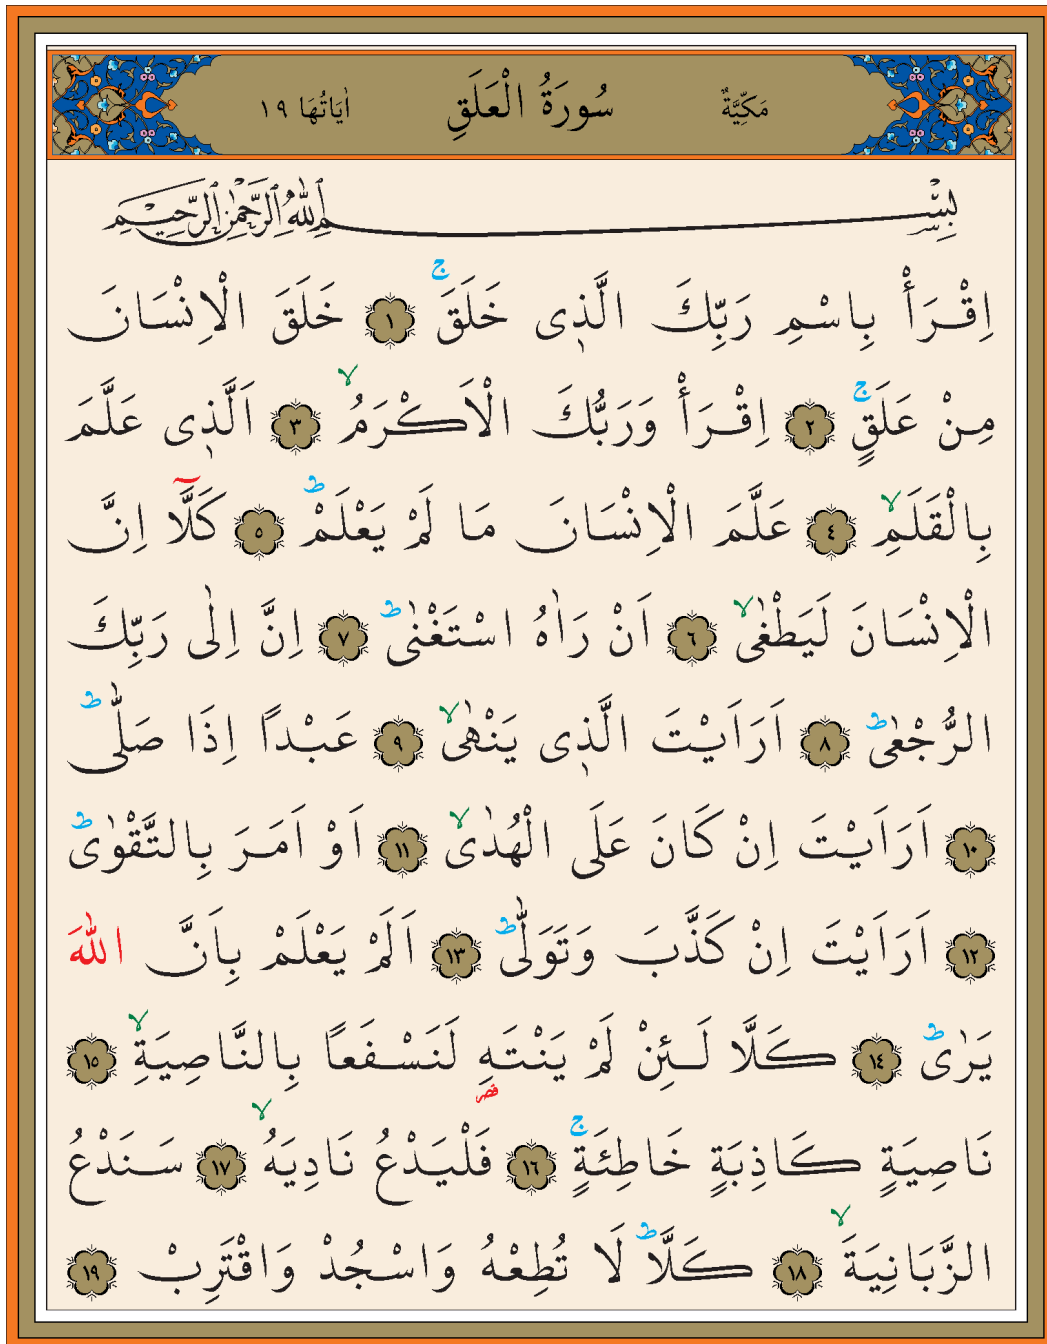 مَكِّيَّةٌ سُورَةُ الْعَلَقِ اٰيَاتُهَا ١٩
بِسْمِ اللّٰهِ الرَّحْمٰنِ الرَّحِيمِ
اِقْرَأْ بِاسْمِ رَبِّكَ الَّذ۪ى خَلَقَۚ ﴿١﴾ خَلَقَ الْاِنْسَانَ
مِنْ عَلَقٍۚ ﴿٢﴾ اِقْرَأْ وَرَبُّكَ الْاَكْرَمُۙ ﴿٣﴾ اَلَّذ۪ى عَلَّمَ
بِالْقَلَمِۙ ﴿٤﴾ عَلَّمَ الْاِنْسَانَ مَا لَمْ يَعْلَمْۜ ﴿٥﴾ كَلَّٓا اِنَّ
الْاِنْسَانَ لَيَطْغٰىۙ ﴿٦﴾ اَنْ رَاٰهُ اسْتَغْنٰىۜ ﴿٧﴾ اِنَّ اِلٰى رَبِّكَ
الرُّجْعٰىۜ ﴿٨﴾ اَرَاَيْتَ الَّذ۪ى يَنْهٰىۙ ﴿٩﴾ عَبْدًا اِذَا صَلّٰىۜ
﴿١٠﴾ اَرَاَيْتَ اِنْ كَانَ عَلَى الْهُدٰىۙ ﴿١١﴾ اَوْ اَمَرَ بِالتَّقْوٰىۜ
﴿١٢﴾ اَرَاَيْتَ اِنْ كَذَّبَ وَتَوَلّٰىۜ ﴿١٣﴾ اَلَمْ يَعْلَمْ بِاَنَّ اللّٰهَ
يَرٰىۜ ﴿١٤﴾ كَلَّا لَئِنْ لَمْ يَنْتَهِ لَنَسْفَعًا بِالنَّاصِيَةِۙ ﴿١٥﴾
قصر
نَاصِيَةٍ كَاذِبَةٍ خَاطِئَةٍۚ ﴿١٦﴾ فَلْيَدْعُ نَادِيَهُۙ ﴿١٧﴾ سَنَدْعُ
الزَّبَانِيَةَۙ ﴿١٨﴾ كَلَّاۜ لَا تُطِعْهُ وَاسْجُدْ وَاقْتَرِبْ ﴿١٩﴾